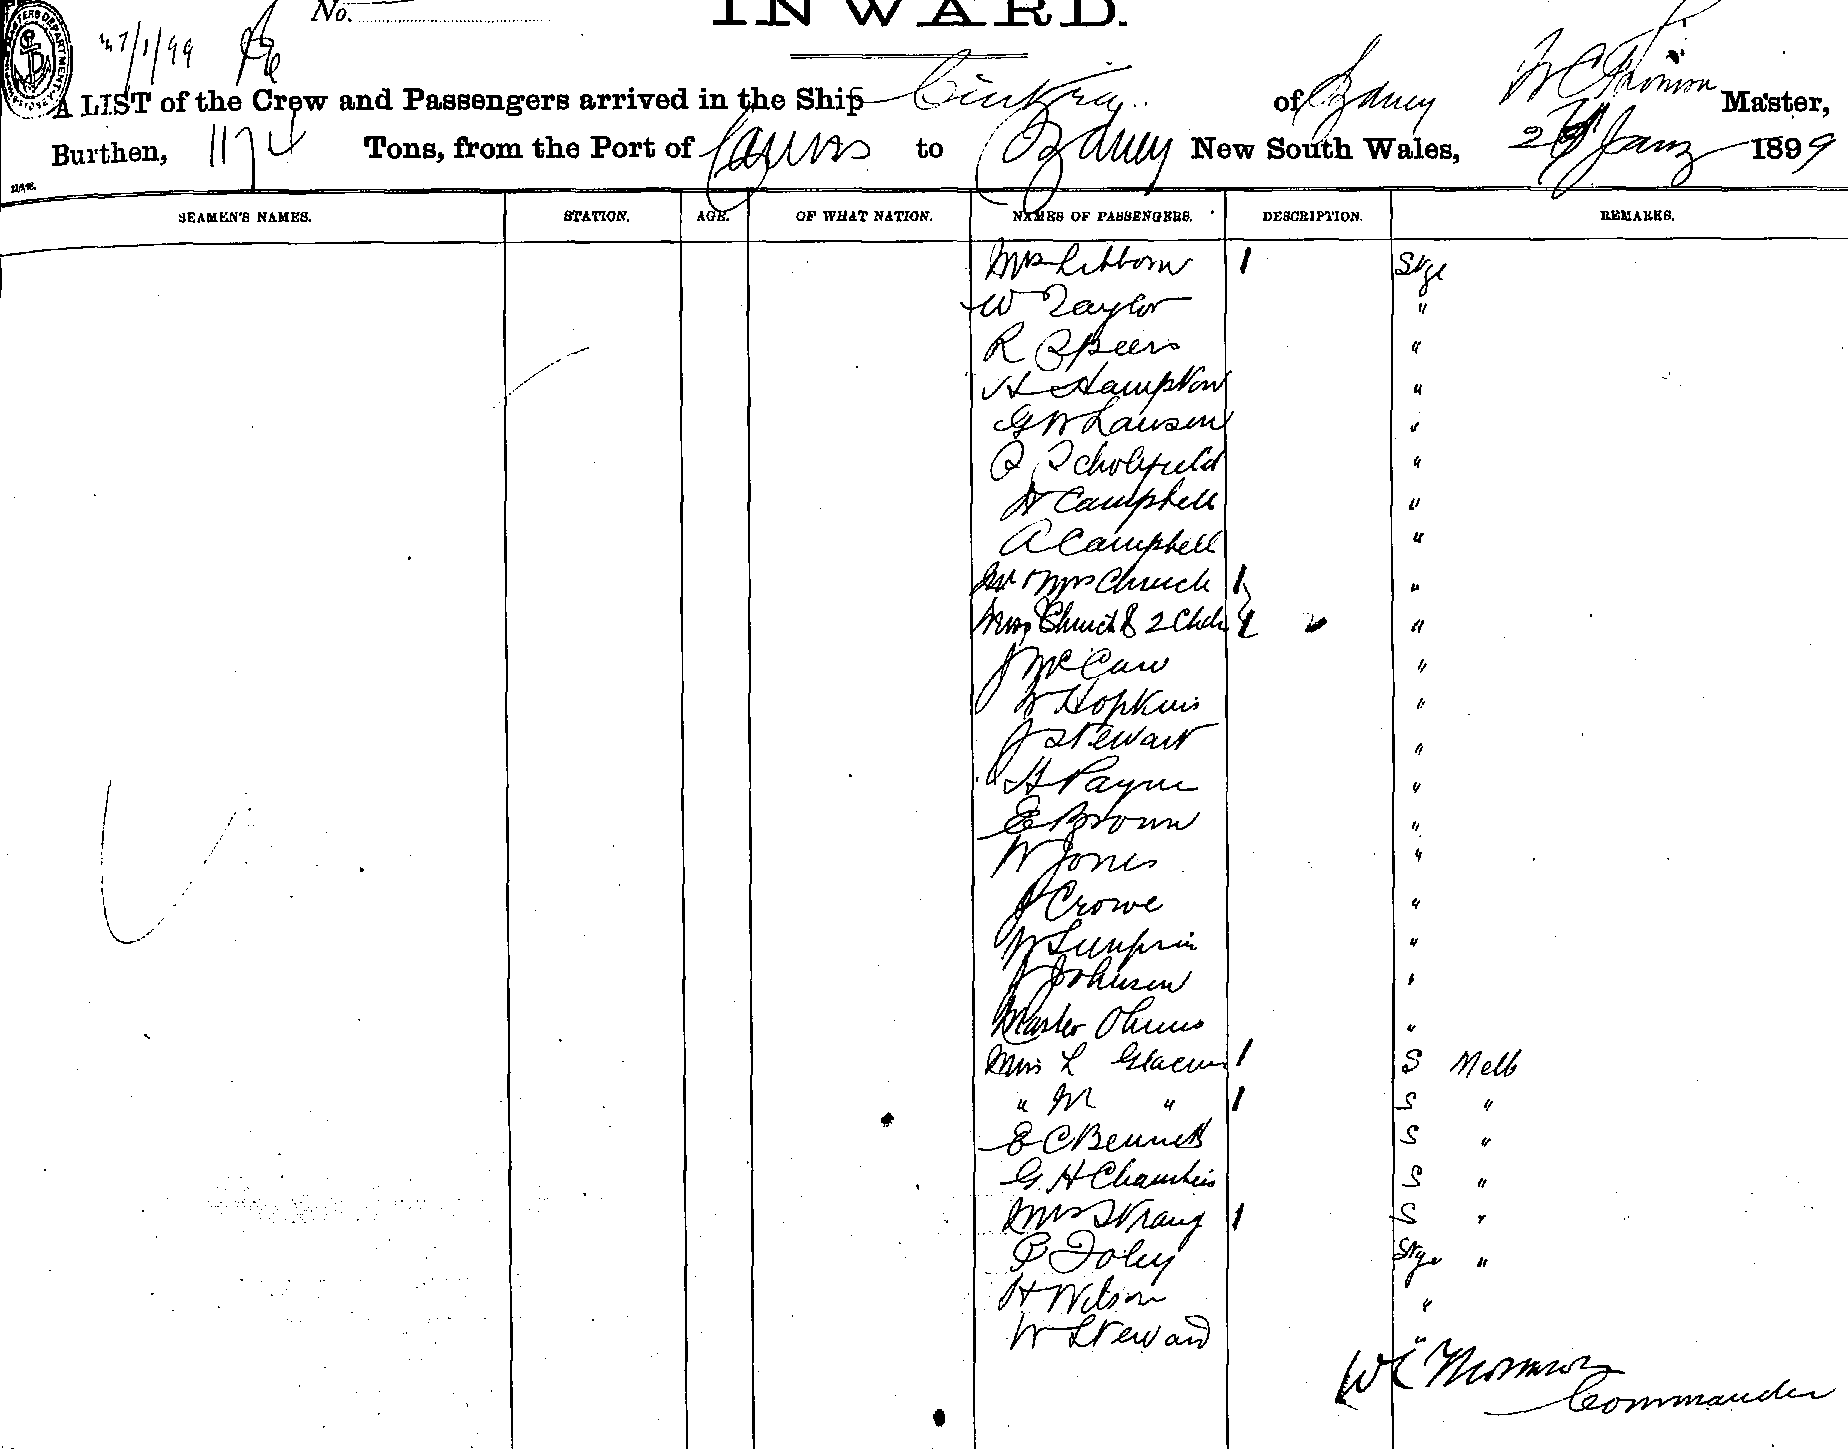 No.
INWARD.
27/1/99
A LIST of the Crew and Passengers arrived in the Ship of Sydney Master,
Burthen, 1174 Tons, from the Port of Cairns to Sydney New South Wales, Jany 1899
SEAMEN'S NAMES. STATION. AGE. OF WHAT NATION. NAMES OF PASSENGERS. DESCRIPTION. REMARKS.
Mrs 1 Stge
W Taylor "
R Speers "
H Hampton "
G W Lawson "
Scholefield "
H Campbell "
A Campbell "
Mr & Mrs Church 1 "
Church & 2 Chdn "
J McCaw "
W Hopkins "
J Stewart "
H Payne "
E Brown "
W Jones "
J Crowe "
W "
J Johnson "
Master "
Miss L 1 S Melb
" M " 1 S "
E C Bennett S "
G H Chambers S "
Mrs Strang 1 S "
P Foley Stge "
H Wilson "
W Steward "
W C Thomson
Commander